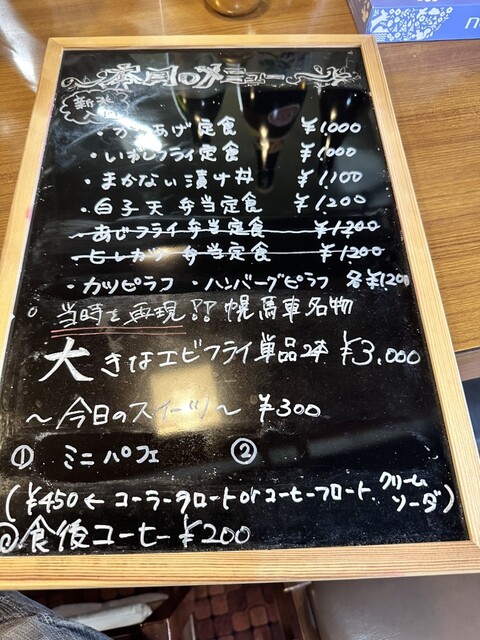 新米入荷
・からあげ定食 ¥1000
・いわしフライ定食 ¥1000
・まかない漬け丼 ¥1,100
・白子天弁当定食 ¥1,200
あじフライ弁当定食 ¥1200
ヒレカツ弁当定食 ¥1200
・カツピラフ ・ハンバーグピラフ 各¥1,200
。当時を再現!! 幌馬車名物
大きなエビフライ単品2本 ¥3,000
～今日のスイーツ～ ¥300
① ミニパフェ ②
(¥450← コーラーフロート or コーヒーフロート. クリームソーダ)
◎食後コーヒー ¥200